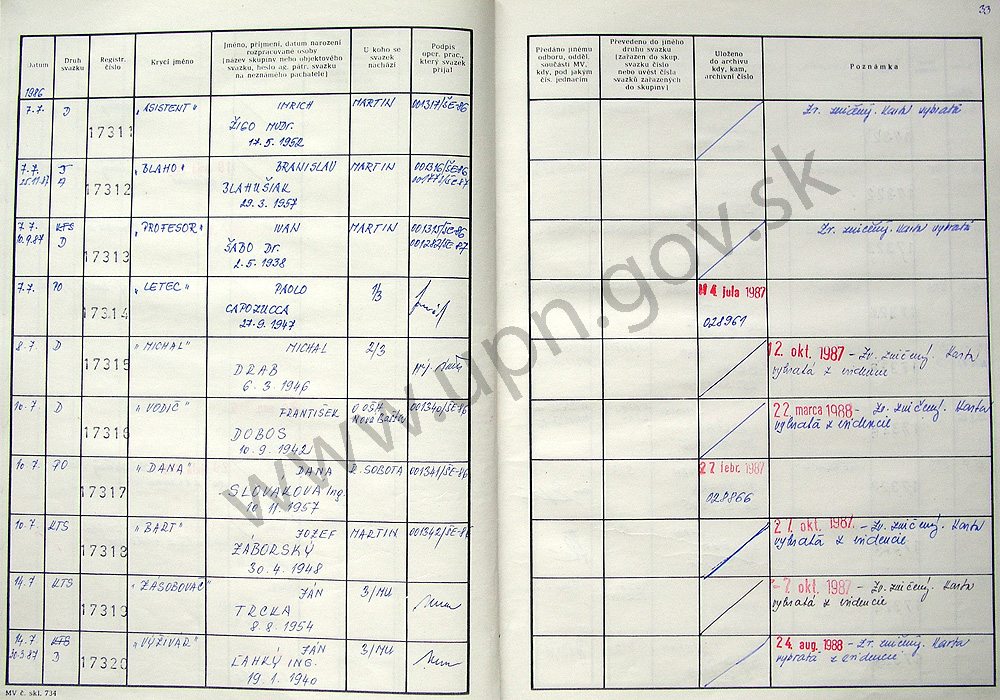 33
Datum
Druh svazku
Registr. číslo
Krycí jméno
Jméno, příjmení, datum narození rozpracované osoby
[název skupiny nebo objektového svazku, heslo ag. pátr. svazku na neznámého pachatele]
U koho se svazek nachází
Podpis oper. prac., který svazek přijal
Předáno jinému odboru, odděl. součásti MV, kdy, pod jakým čís. jednacím
Převedeno do jiného druhu svazku [zařazen do skup. svazku číslo nebo uvést čísla svazků zařazených do skupiny]
Uloženo do archivu kdy, kam, archivní číslo
Poznámka
1986
7.7. D 17311 "ASISTENT" IMRICH MARTIN 001317/ŠE-86 Zv. zničený. Karta vybratá
ŽIGO MUDr.
17.5. 1952
7.7. 17312 "BLAHO" BRANISLAV MARTIN 001316/ŠE-86
25.11.87 A BLAHUŠIAK 001771/ŠE-87
29.3. 1957
7.7. KTS 17313 "PROFESOR" IVAN MARTIN 001315/ŠE-86 Zv. zničený. Karta vybratá
10.9.87 D ŠABO Dr. 001282/ŠE-87
2.5. 1938
7.7. PO 17314 "LETEC" PAOLO 1/3 14 jula 1987
CAPOZUCCA 028961
27.9. 1947
8.7. D 17315 "MICHAL" MICHAL 2/3 12. okt. 1987 - Zv. zničený. Karta
DRAB vybratá z evidencie
6.3. 1946
10.7. D 17316 "VODIČ" FRANTIŠEK 001340/ŠE-86 22. marca 1988 - Zv. zničený. Karta
DOBOS vybratá z evidencie
10.9. 1942
10.7. PO 17317 "DANA" DANA R. SOBOTA 001341/ŠE-86 27 febr. 1987
SLOVAKOVA Ing. 028866
10.11. 1957
10.7. KTS 17318 "BART" JOZEF MARTIN 001342/ŠE-86 27. okt. 1987. - Zv. zničený. Karta
ZÁBORSKÝ vybratá z evidencie
30.4. 1948
14.7 KTS 17319 "ZASOBOVAČ" JÁN 3/MU -7. okt. 1987 - Zv. zničený. Karta
TRCKA vybratá z evidencie
8.8. 1954
14.7. KTS 17320 "VÝŽIVAR" JÁN 3/MU 24. aug. 1988 - Zv. zničený. Karta
30.3.87 D ĽAHKÝ ING. vybratá z evidencie
19.1. 1940
MV č. skl. 734
www.upn.gov.sk